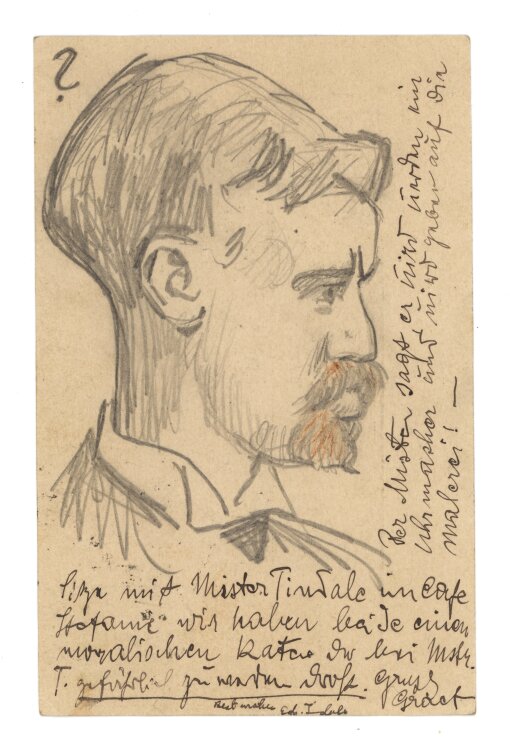 ?
Der Mister sagt er wird werden ein
Uhrmasher und wird geben auf die
malerei! —
Sitze mit Mister Tindale im Cafe
Stefanie wir haben beide einen
moralischen Kater der bei Mstr.
T. gefährlich zu werden droht. Gruss
Graef
Best wishes Edw. Tindale